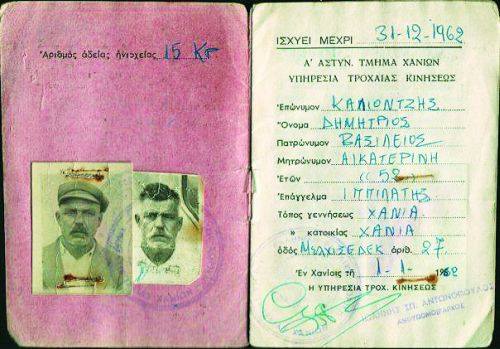 Ἀριθμὸς ἀδείας ἡνιοχείας 15 Κτ
ΙΣΧΥΕΙ ΜΕΧΡΙ 31-12-1962
Α΄ ΑΣΤΥΝ. ΤΜΗΜΑ ΧΑΝΙΩΝ
ΥΠΗΡΕΣΙΑ ΤΡΟΧΑΙΑΣ ΚΙΝΗΣΕΩΣ
Ἐπώνυμον ΚΑΛΙΟΝΤΖΗΣ
Ὄνομα ΔΗΜΗΤΡΙΟΣ
Πατρώνυμον ΒΑΣΙΛΕΙΟΣ
Μητρώνυμον ΑΙΚΑΤΕΡΙΝΗ
Ἐτῶν 52
Ἐπάγγελμα ΙΠΠΗΛΑΤΗΣ
Τόπος γεννήσεως ΧΑΝΙΑ
» κατοικίας ΧΑΝΙΑ
ὁδὸς Μελχισεδέκ ἀριθ. 27
Ἐν Χανίοις τῇ 1-1-1962
Η ΥΠΗΡΕΣΙΑ ΤΡΟΧ. ΚΙΝΗΣΕΩΣ
ΣΠ. ΑΝΤΩΝΟΠΟΥΛΟΣ